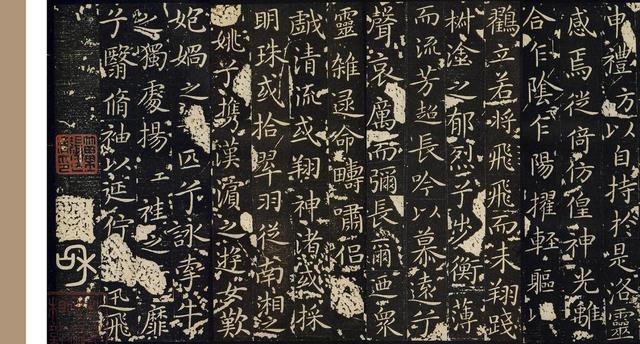 申禮方以自持於是洛靈
感焉徙倚仿偟神光離
合乍陰乍陽擢輕軀以
鶴立若將飛飛而未翔踐
椒塗之郁烈兮步衡薄
而流芳超長吟以慕遠兮
聲哀厲而彌長爾迺眾
靈雜遝命疇嘯侶
戲清流或翔神渚或採
明珠或拾翠羽從南湘之
姚兮攜漢濱之遊女歎
媧之匹兮詠牽牛
之獨處揚袿之靡
兮翳脩袖以延佇迅飛